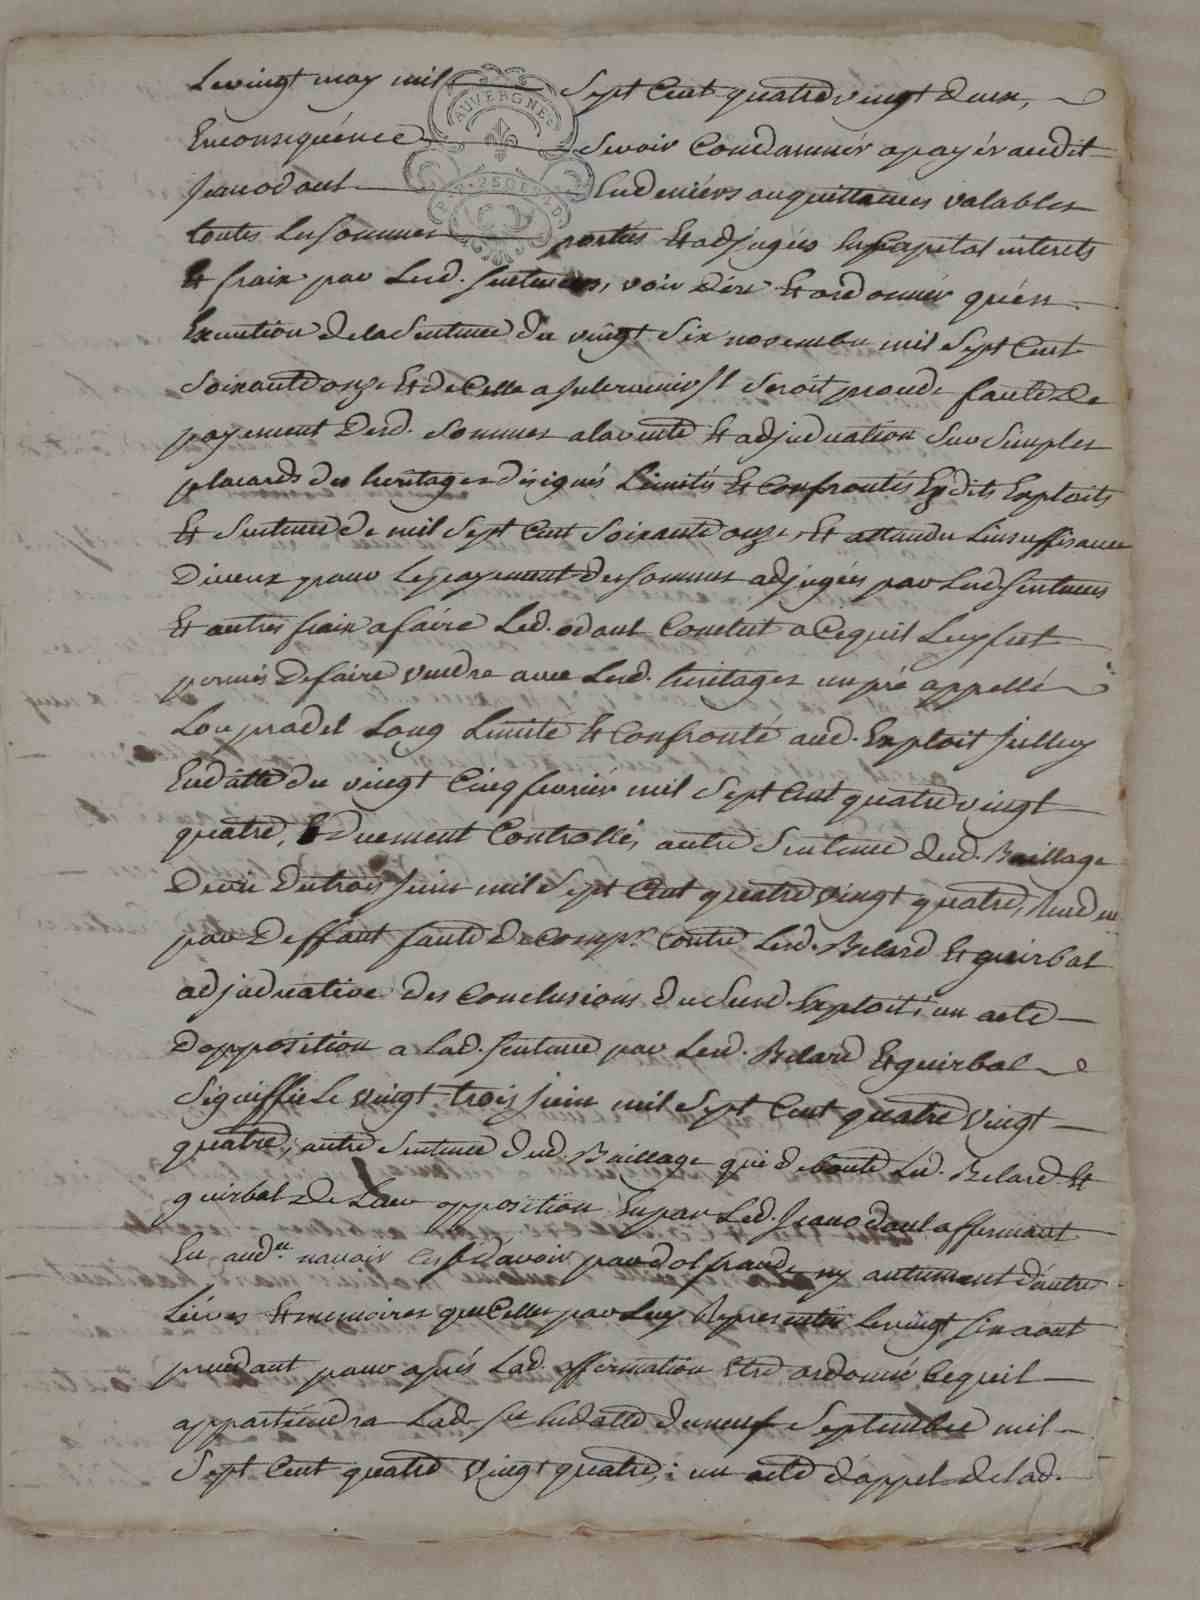 Le vingt may mil Sept Cent quatre vingt deux,
En consequénce Sevoir Condamnér a payér audit
Jean odoul En deniérs ou quittances valables
toutes les sommes portés Et adjugées En Capital interets
Et fraix par Lesd. sentences, voir dire Et ordonnér qu'én
Execution de la Sentence du vingt Six novembre mil Sept Cent
Soixante onze Et de Celle a Intervenir Il Seroit procede faute de
payement desd. Sommes a la vente Et adjudication Sur Simples
placards des heritages désignés Limités Et Confrontés Esdits Exploits
Et Sentence de mil Sept Cent Soixante onze, Et attendu Linsuffisance
Diceux pour Le payement des sommes adjugées par Lesd Sentences
Et autres fraix a faire Led. odoul Conclut a Cequil Luy fut
permis de faire vendre avec Lesd. heritages un pré appellé
Lou pradel Long Limité Et Confronté aud. Exploit Jcelluy
En datte du vingt Cinq fevriér mil Sept Cent quatre vingt
quatre, duement Controllé, autre Sentence dud. Baillage
De vic du trois Juin mil Sept Cent quatre vingt quatre, Rendue
par Deffaut faute de Compr. Contre Lesd. Belard Et guirbal
adjudicative des Conclusions du Susd. Exploit; un acte
D'opposition a Lad. sentence par Lesd. Belard Et guirbal
Signiffié Le vingt trois Juin mil Sept Cent quatre vingt
quatre; autre Sentence dud. Baillage qui deboute Led. Belard Et
guirbal de Leur opposition En par Led. Jean odoul affirmant
En audce navoir Et d'avoir par dol fraude ny autrement d'autre
Liéves Et memoires que Celles par Luy Representés Le vingt six aout
precedant pour aprés Lad. affirmation Etre ordonné Cequil
appartiendra Lad. sce En datte du neuf Septembre mil
Sept Cent quatre vingt quatre; un acte d'appel de lad.
AUVERGNE